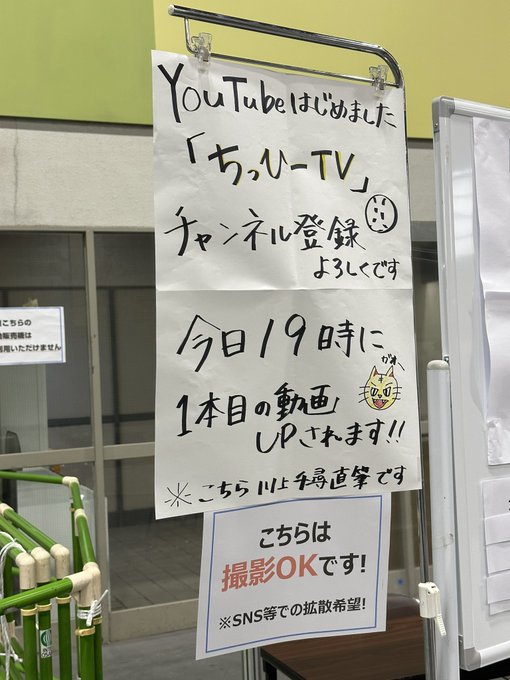 YouTubeはじめました
「ちっひーTV」
チャンネル登録
よろしくです
今日19時に
がお〜
1本目の動画
UPされます!!
※こちら川上千尋直筆です
こちらは
撮影OKです!
※SNS等での拡散希望!
こちらの
販売機は
利用いただけません